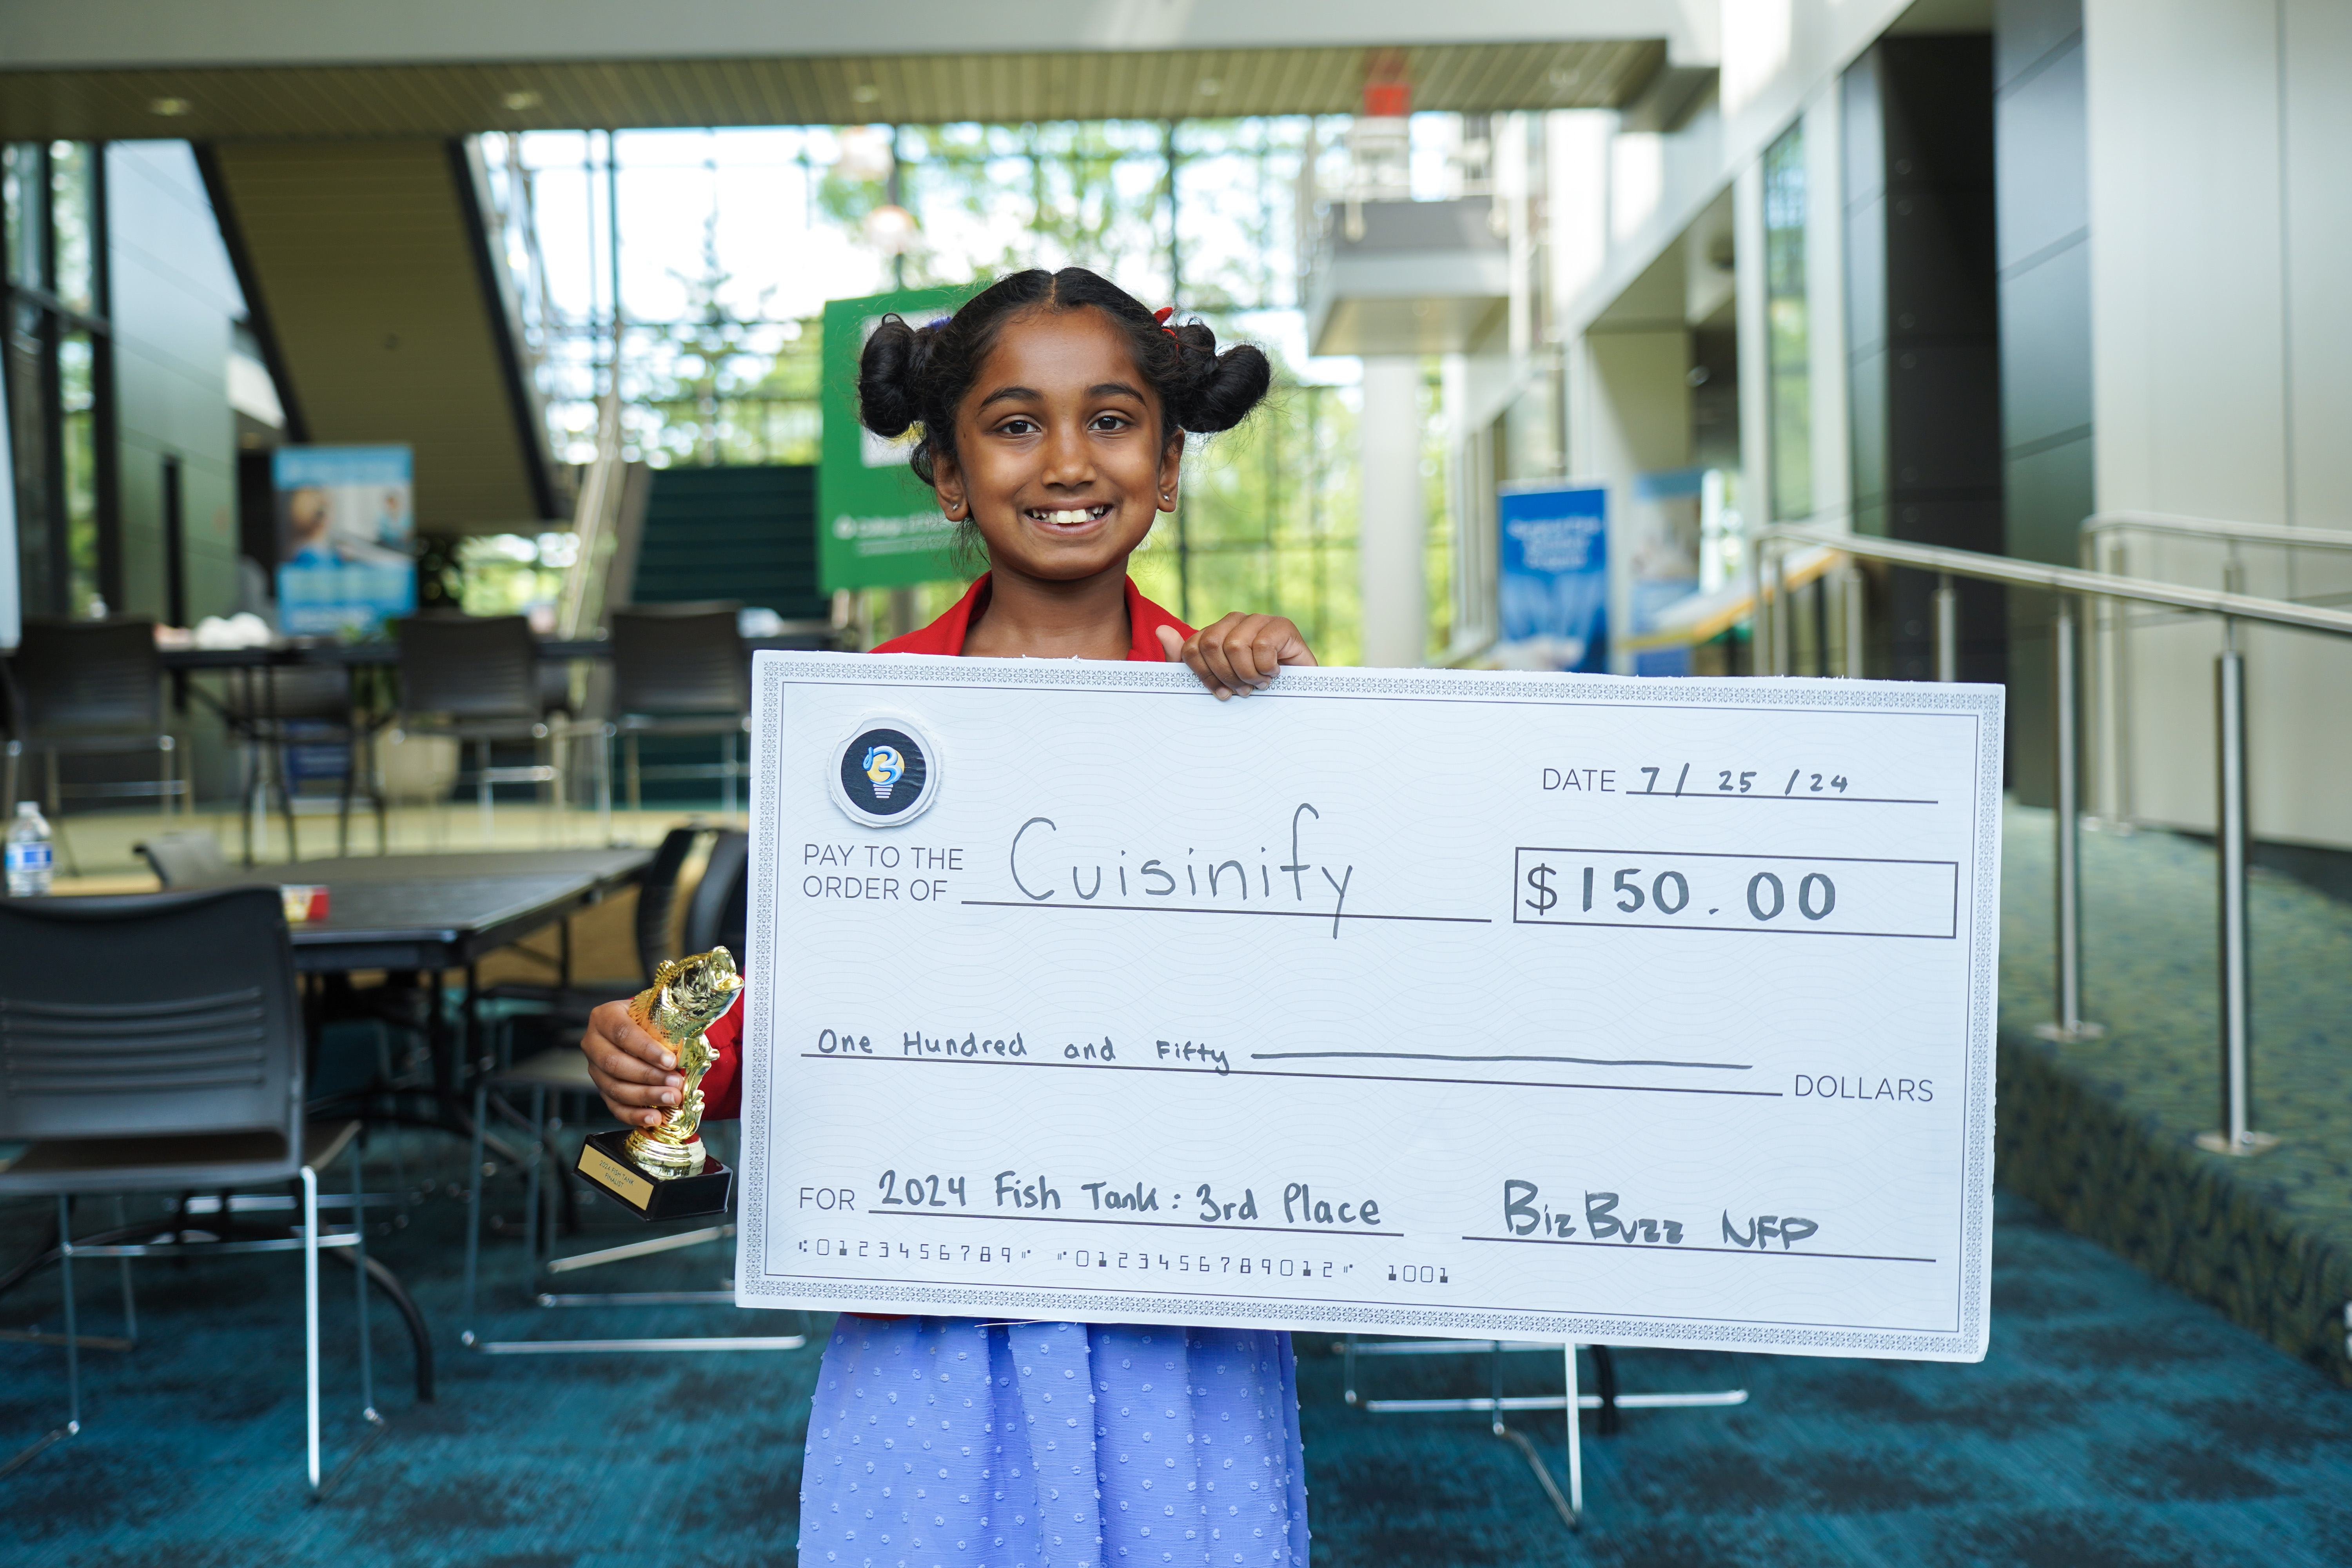 DATE 7/ 25 /24
PAY TO THE
ORDER OF Cuisinify
$150.00
One Hundred and Fifty
DOLLARS
FOR 2024 Fish Tank: 3rd Place
BizBuzz NFP
⑆0123456789⑈ ⑈012345678901 2⑈ 1001
2024 FISH TANK
FINALIST